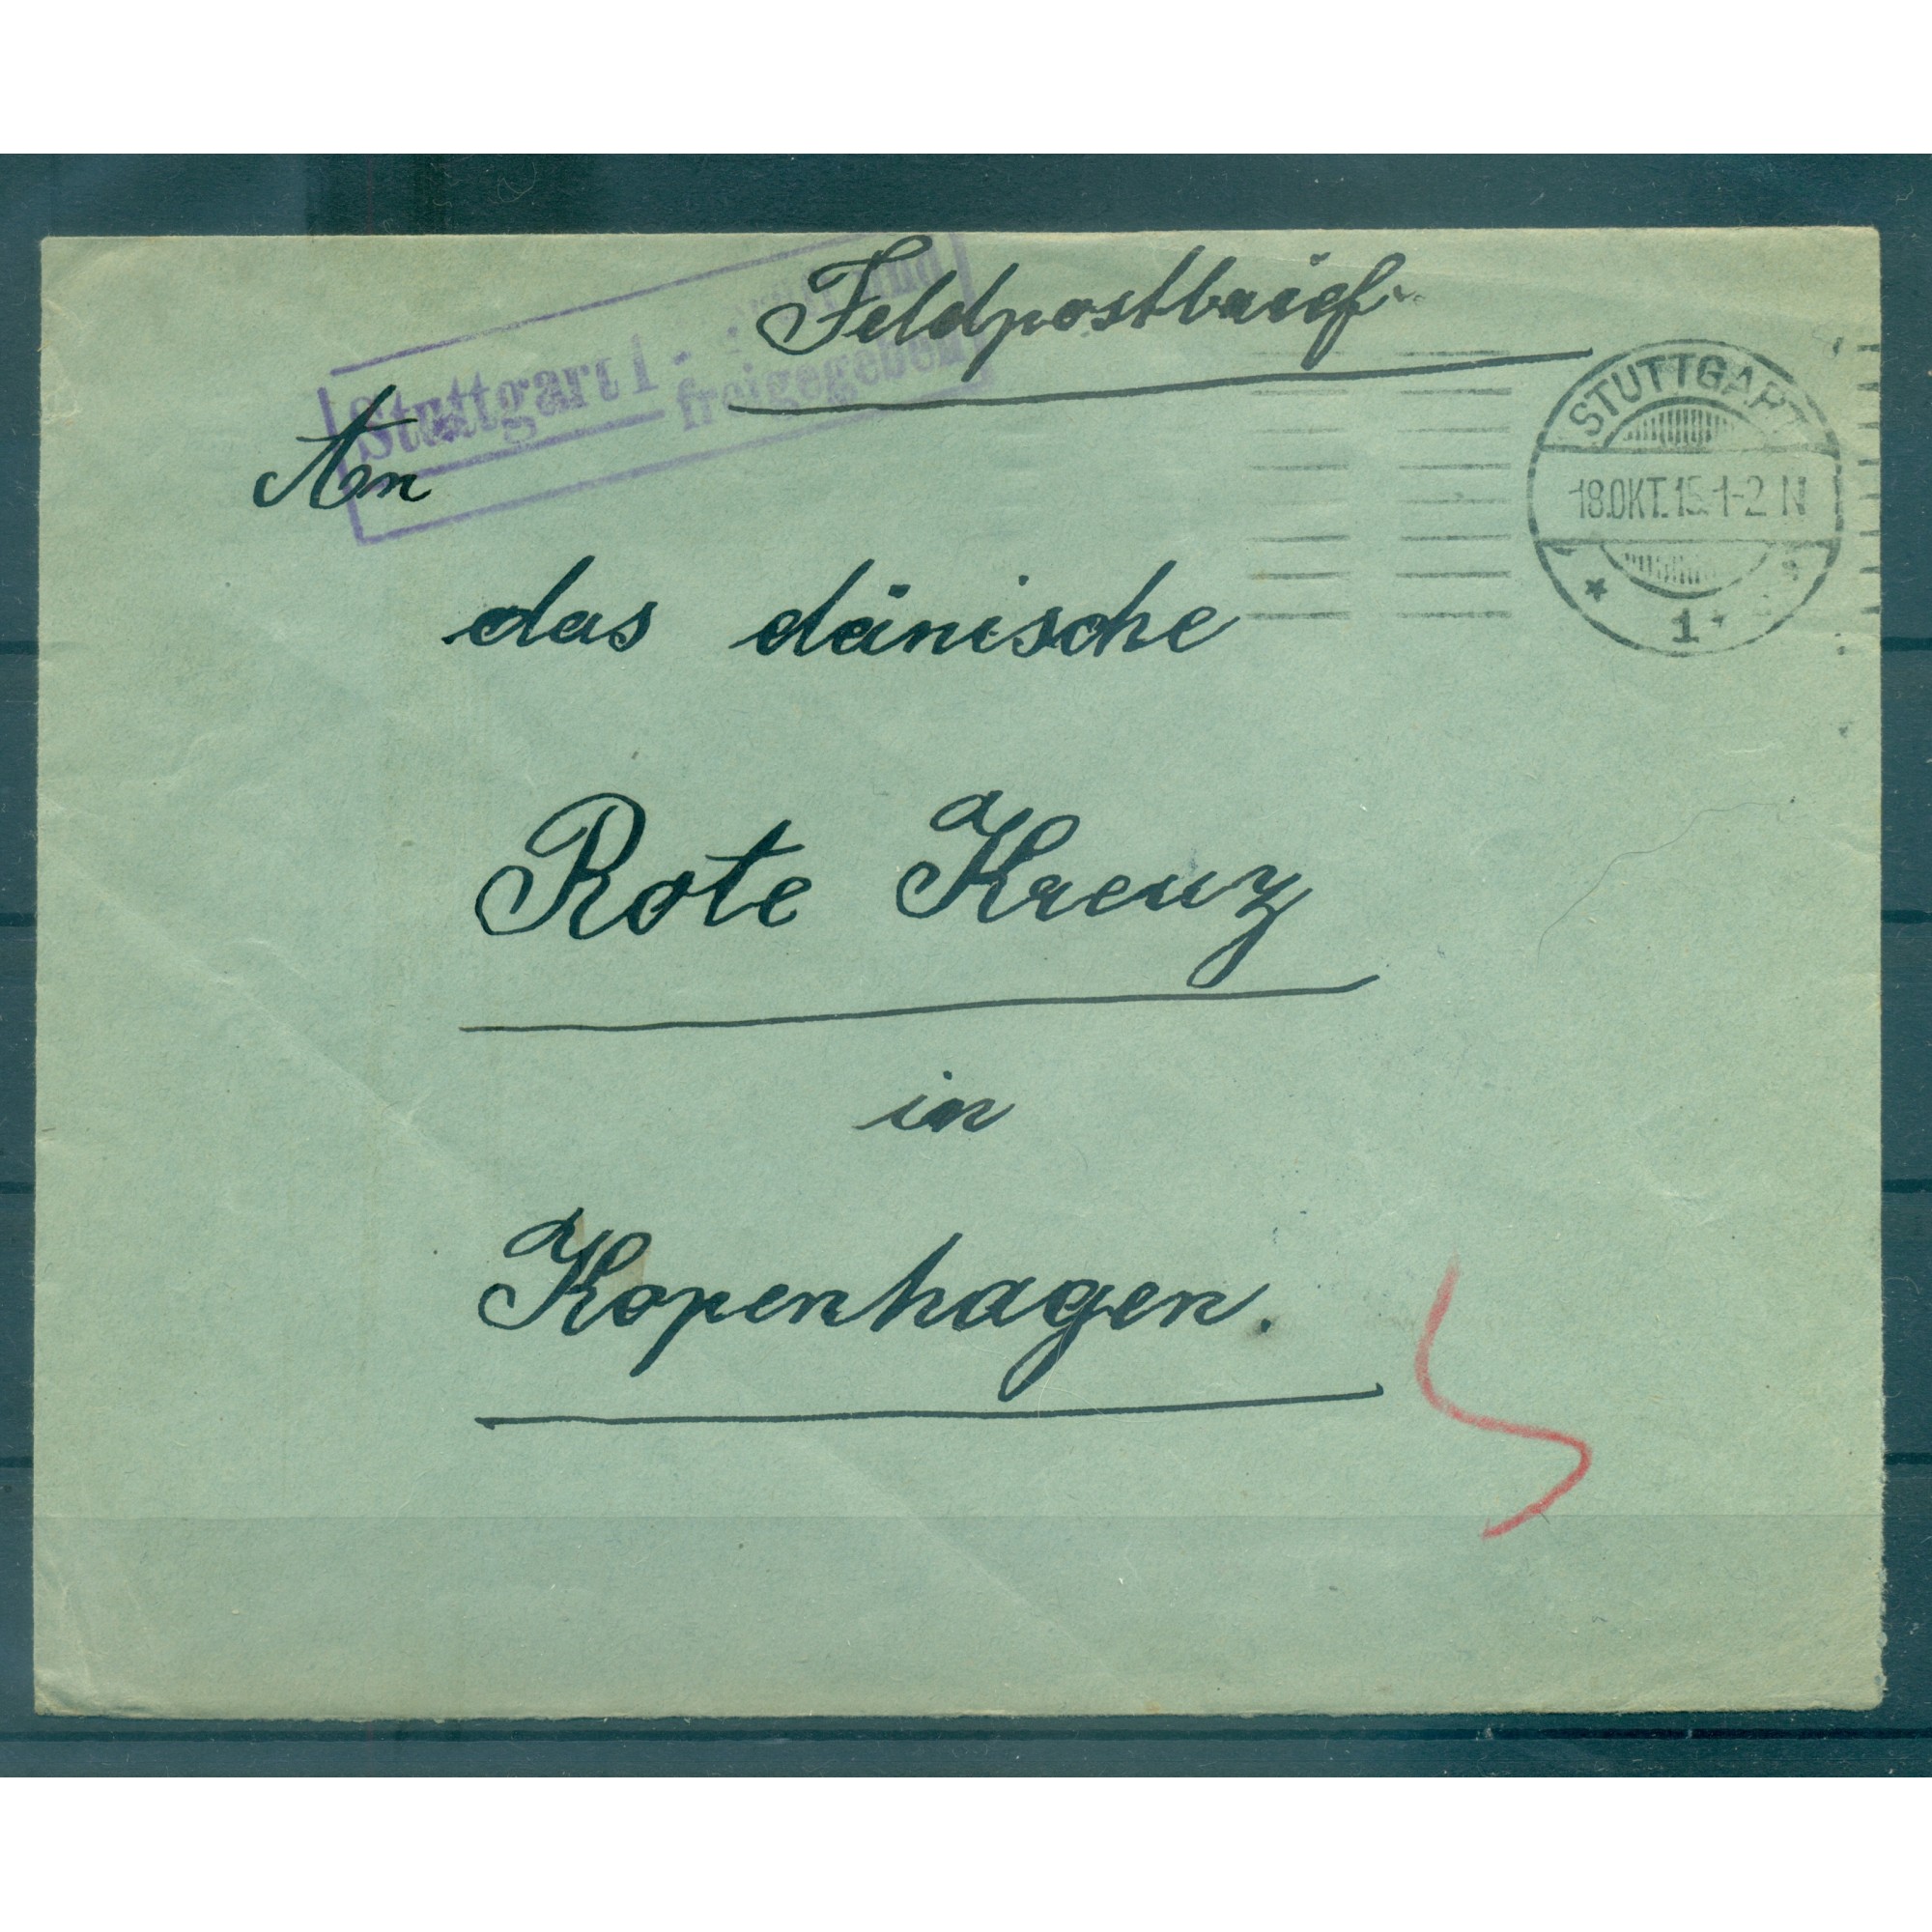 Feldpostbrief.
Stuttgart 1 -
freigegeben
An
STUTTGART
18.OKT.15.1-2 N
* 1 *
das dänische
Rote Kreuz
in
Kopenhagen.